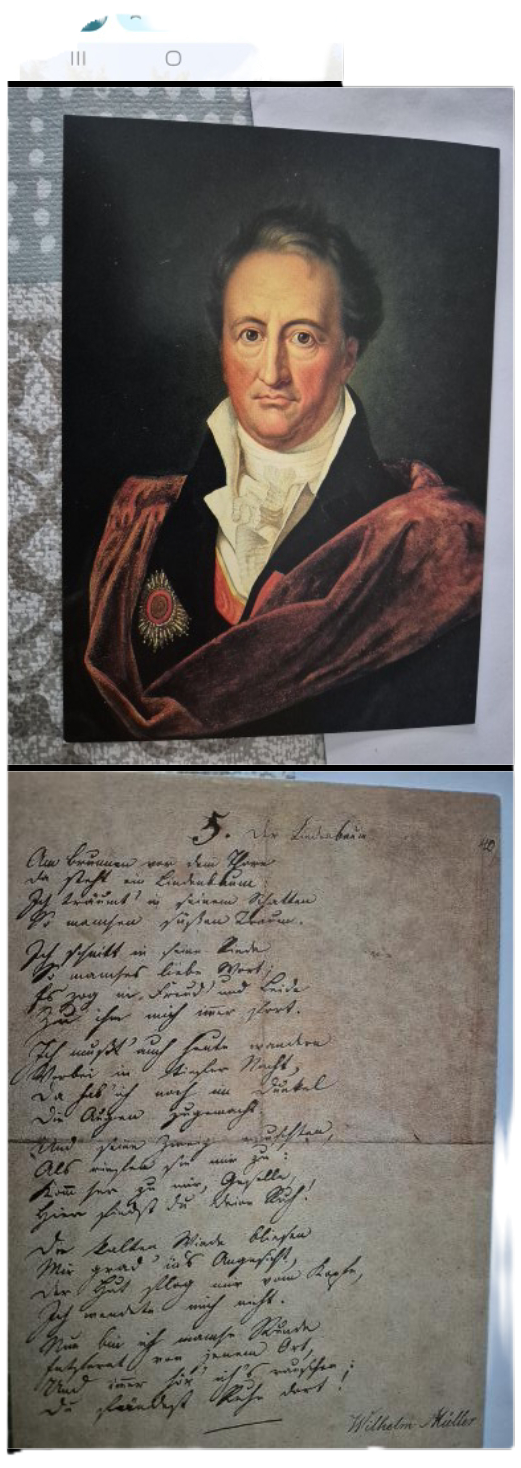 5. Der Lindenbaum
Am Brunnen vor dem Thore
Da steht ein Lindenbaum:
Ich träumt' in seinem Schatten
So manchen süßen Traum.
Ich schnitt in seine Rinde
So manches liebe Wort;
Es zog in Freud' und Leide
Zu ihm mich immer fort.
Ich mußt' auch heute wandern
Vorbei in tiefer Nacht,
Da hab' ich noch im Dunkel
Die Augen zugemacht.
Und seine Zweige rauschten,
Als riefen sie mir zu:
Komm her zu mir, Geselle,
Hier findst du deine Ruh'!
Die kalten Winde bliesen
Mir grad' ins Angesicht,
Der Hut flog mir vom Kopfe,
Ich wendete mich nicht.
Nun bin ich manche Stunde
Entfernt von jenem Ort,
Und immer hör' ich's rauschen:
Du fändest Ruhe dort!
Wilhelm Müller